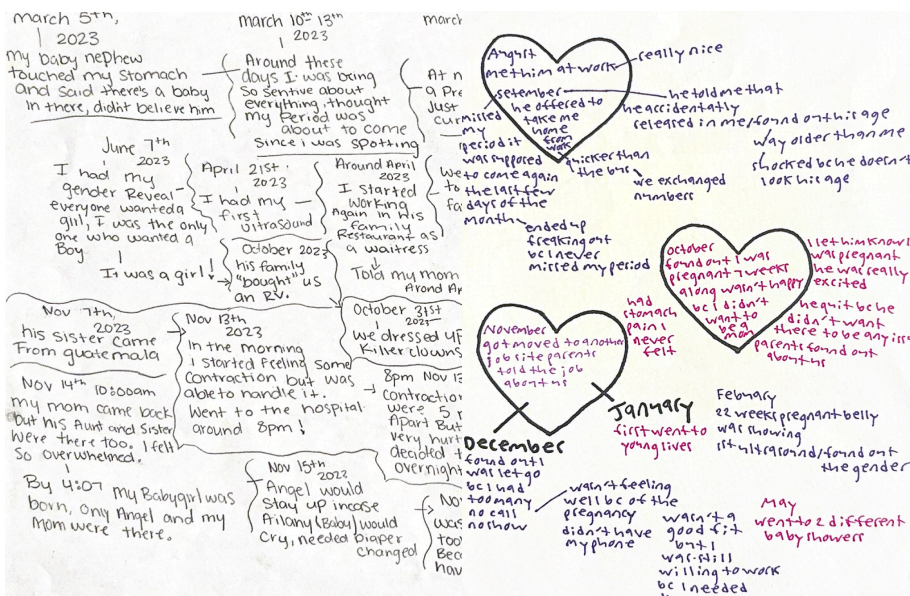 march 5th,
2023
my baby nephew
touched my Stomach
and said there's a baby
in there, didnt believe him
march 10th 13th
2023
Around these
days I was being
so sentive about
everything, thought
my Period was
about to come
Since i was spotting
march
At n
a Pre
Just
cur
June 7th
2023
I had my
gender Reveal
everyone wanted a
girl, I was the only
one who wanted a
Boy
It was a girl!
April 21st.
2023
I had my
first
Ultrasound
Around April
2023
I started
working
Again in His
family
Restaurant as
a waitress
Told my mom
Arond Ap
we
to
fa
October 2023
his family
"bought" us
an RV.
October 31st
2023
we dressed up
Killer clowns
Nov 7th,
2023
his sister came
From guatemala
Nov 13th
2023
In the morning
I started feeling some
contraction but was
able to handle it.
Went to the hospital
around 8pm!
8pm Nov 13
contraction
were 5 m
Apart But
very hurt
decided t
overnight
Nov 14th 10:00am
my mom came back
but his Aunt and Sister
were there too. I felt
so overwhelmed.
By 4:07 my Babygirl was
born, only Angel and my
mom were there.
Nov 15th
2023
Angel would
stay up incase
Ailany (Baby) would
cry, needed Diaper
changed
No
was
too
Bec
hav
August
met him at work
really nice
setember
he offered to
take me
home
from
work
he told me that
he accidentatly
released in me/found out his age
way older than me
shocked bc he doesn't
look his age
quicker than
the bus
we exchanged
numbers
missed
my
period it
was supposed
to come again
the last few
days of the
month
ended up
freaking out
bc I never
missed my period
October
found out I was
pregnant 7 weeks
along wasn't happy
bc I didn't
want to
be a
mom
I let him know I
was pregnant
he was really
excited
he quit bc he
didn't want
there to be any iss
parents found out
about us
had
stomach
pain I
never
felt
November
got moved to another
job site parents
told the job
about us
December
found out I
was let go
bc I had
too many
no call
no show
wasn't feeling
well bc of the
pregnancy
didn't have
my phone
January
first went to
young lives
Febuary
22 weeks pregnant belly
was showing
1st ultrasound/found out
the gender
wasn't a
good fit
but I
was still
willing to work
bc I needed
May
went to 2 different
baby showers